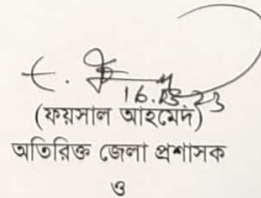 (ফয়সাল আহমেদ)
অতিরিক্ত জেলা প্রশাসক
ও